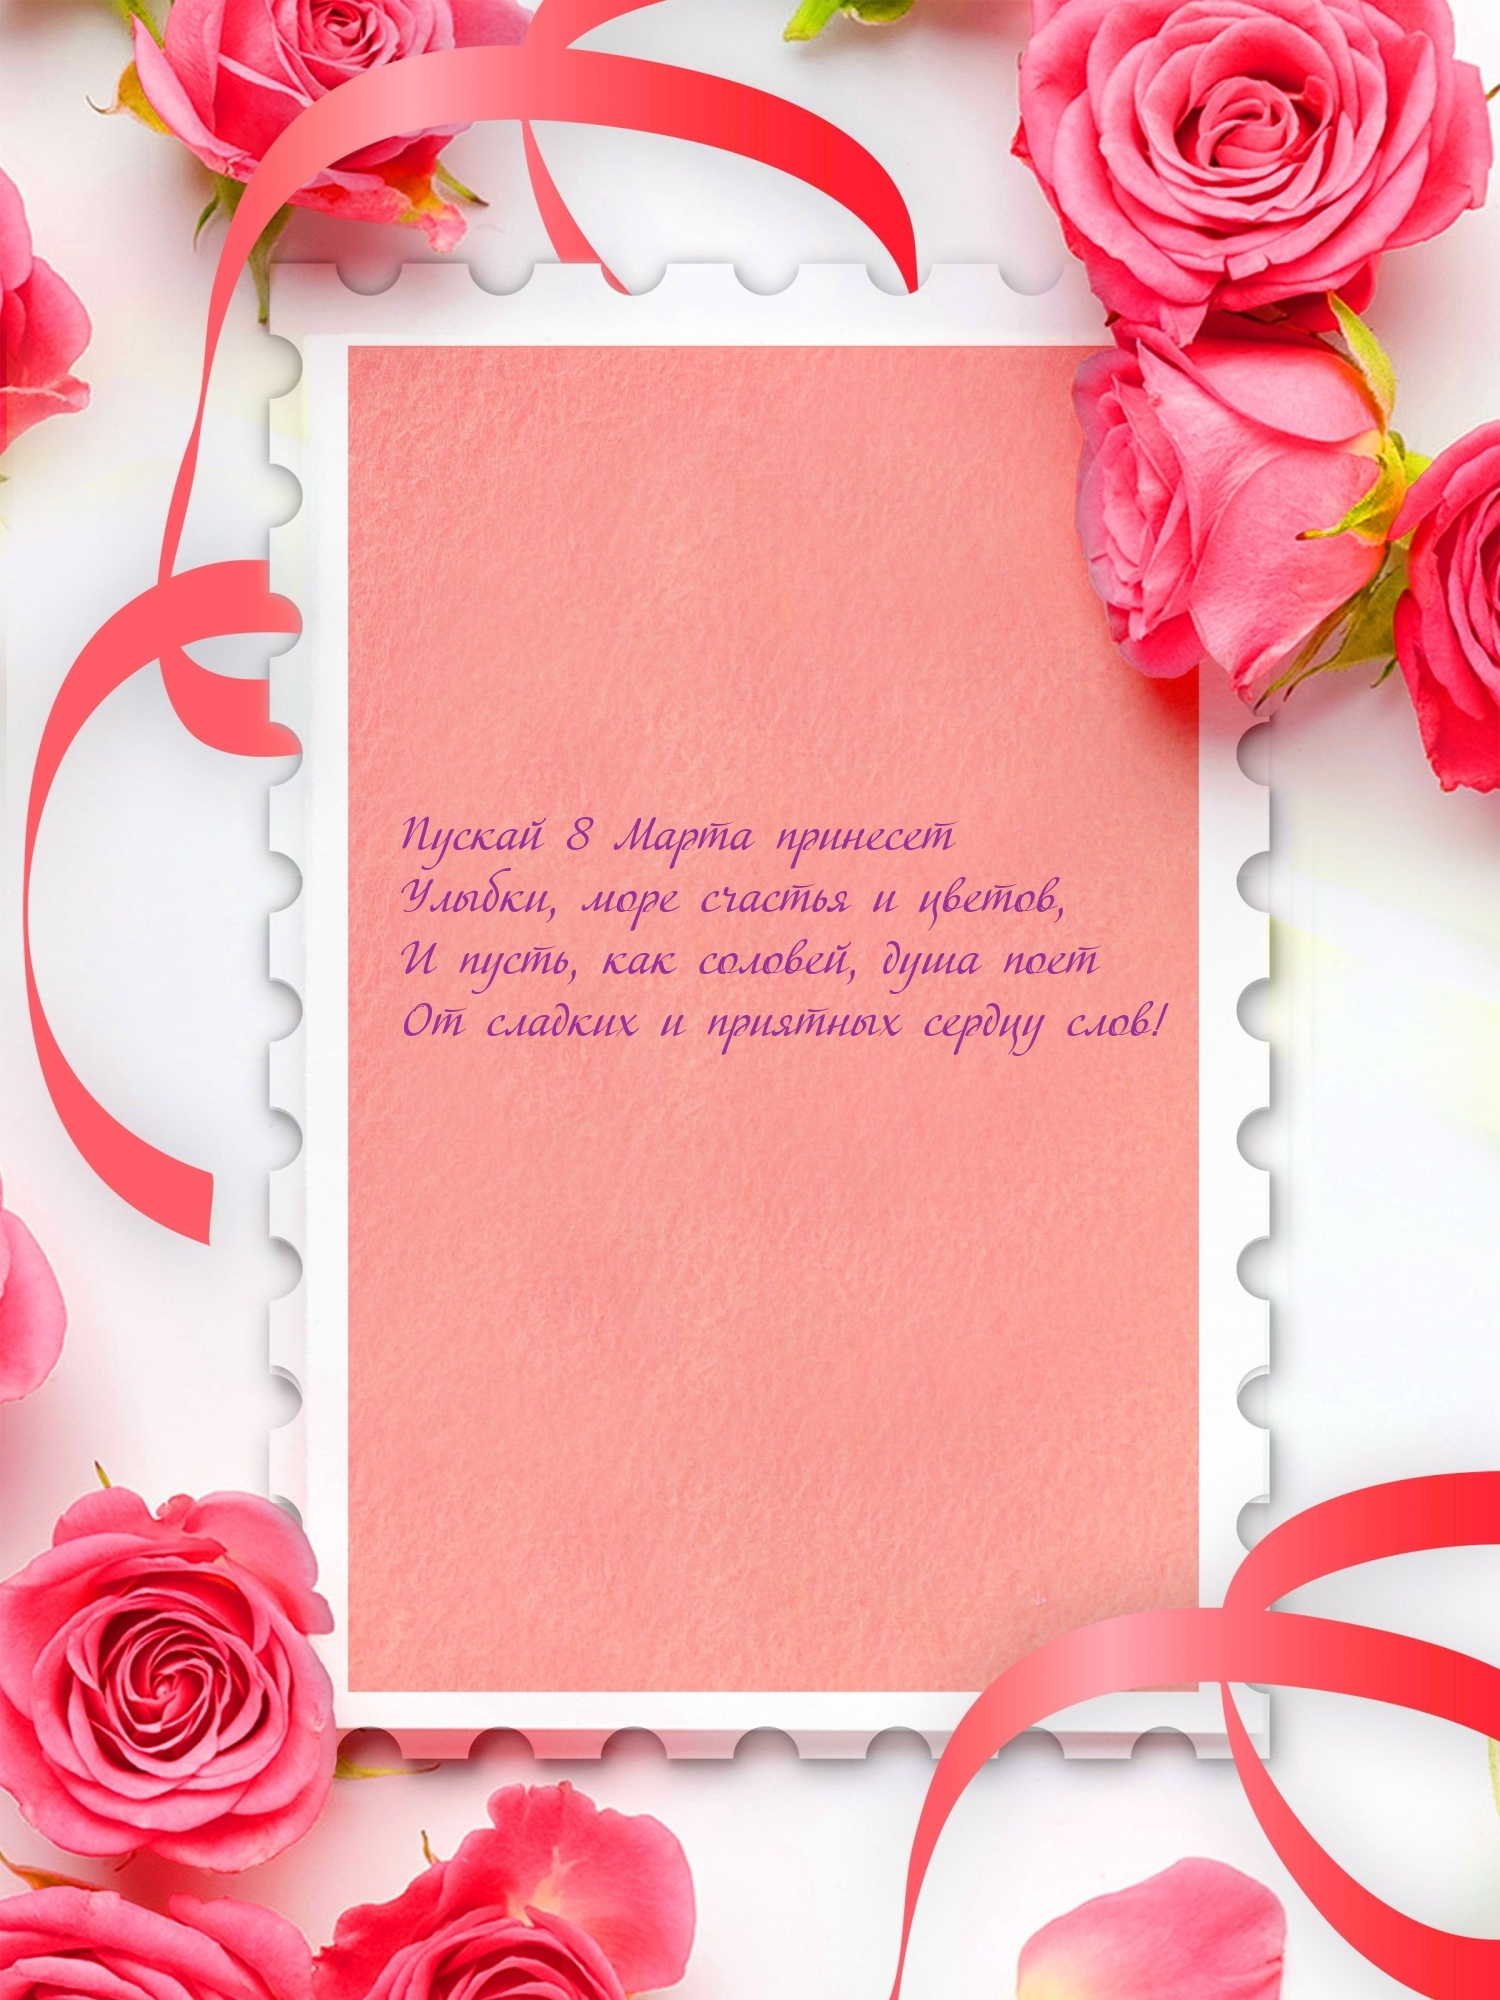 Пускай 8 Марта принесет
Улыбки, море счастья и цветов,
И пусть, как соловей, душа поет
От сладких и приятных сердцу слов!